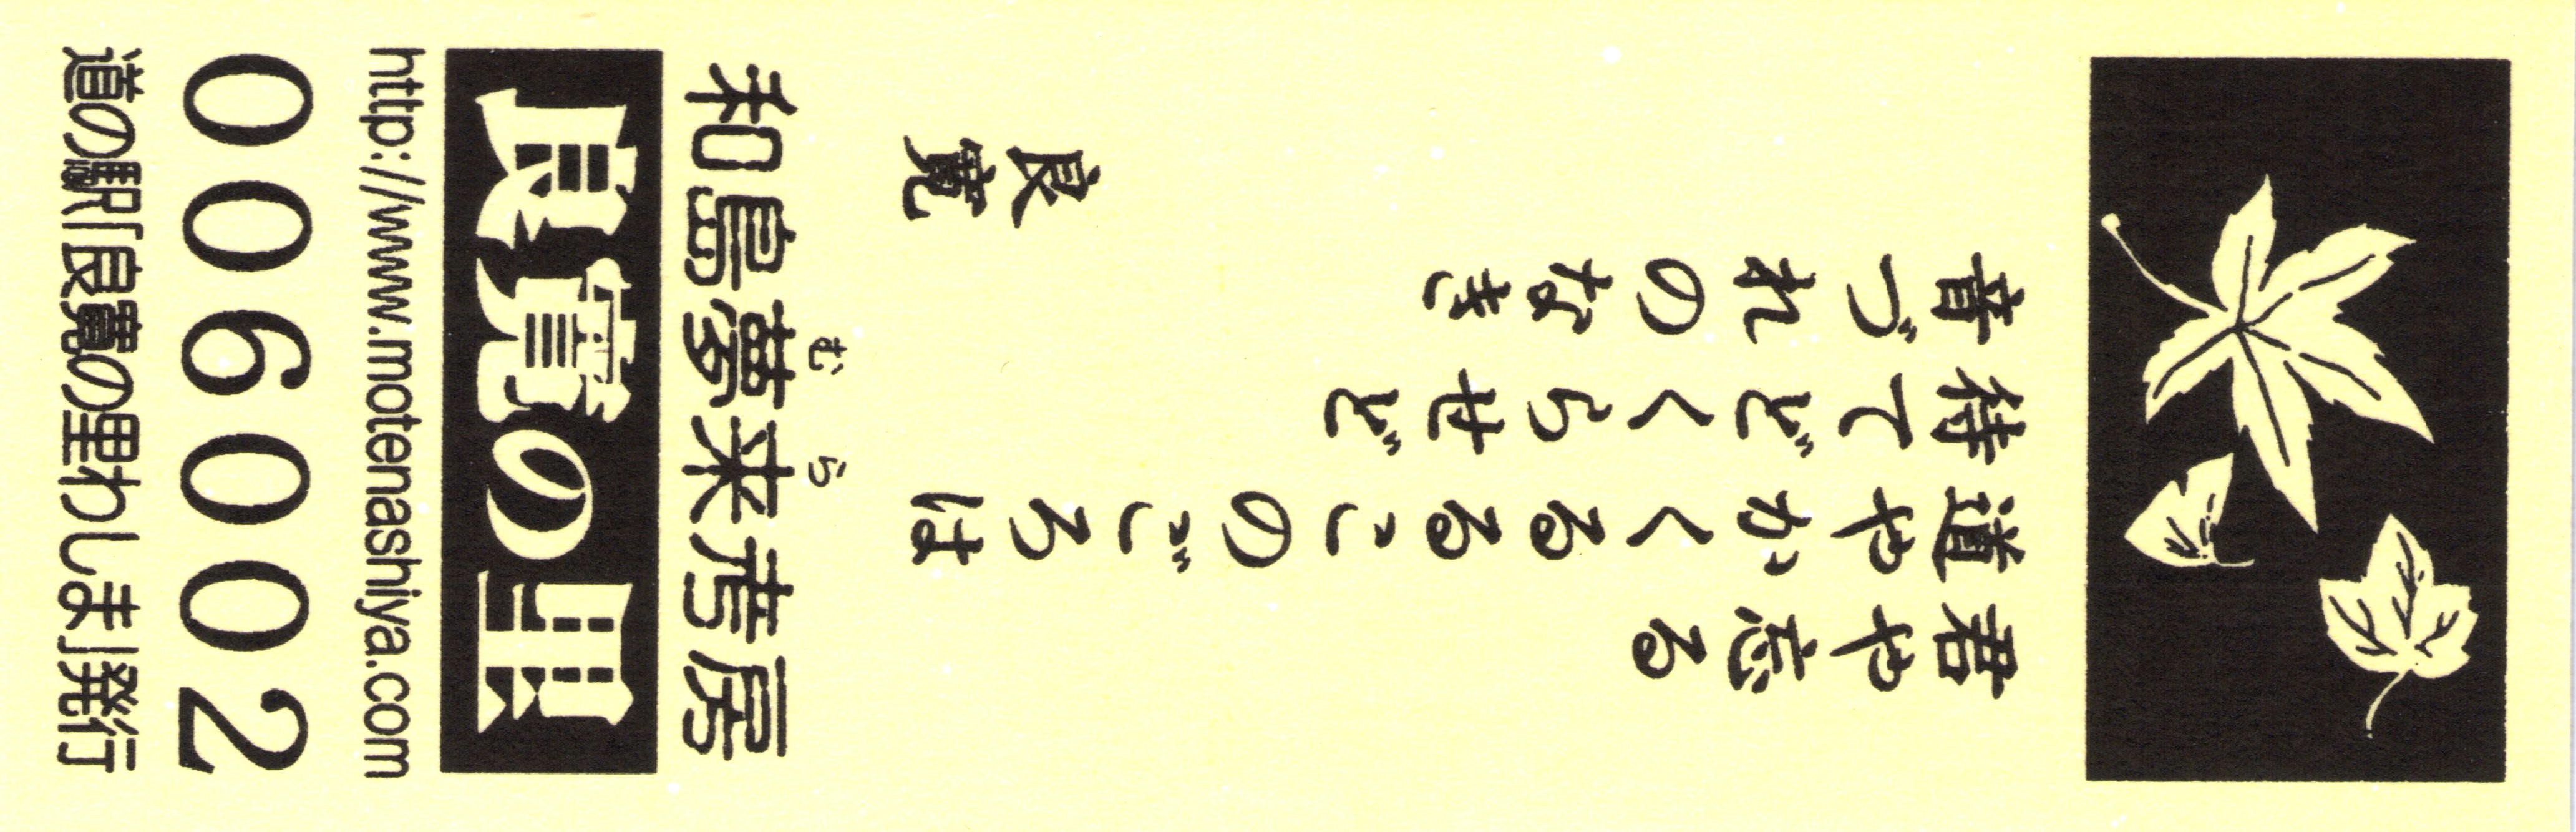 君や忘る
道やかくるるこのごろは
待てどくらせど
音づれのなき
良寛
むら
和島夢来考房
良寛の里
http://www.motenashiya.com
006002
道の駅「良寛の里わしま」発行